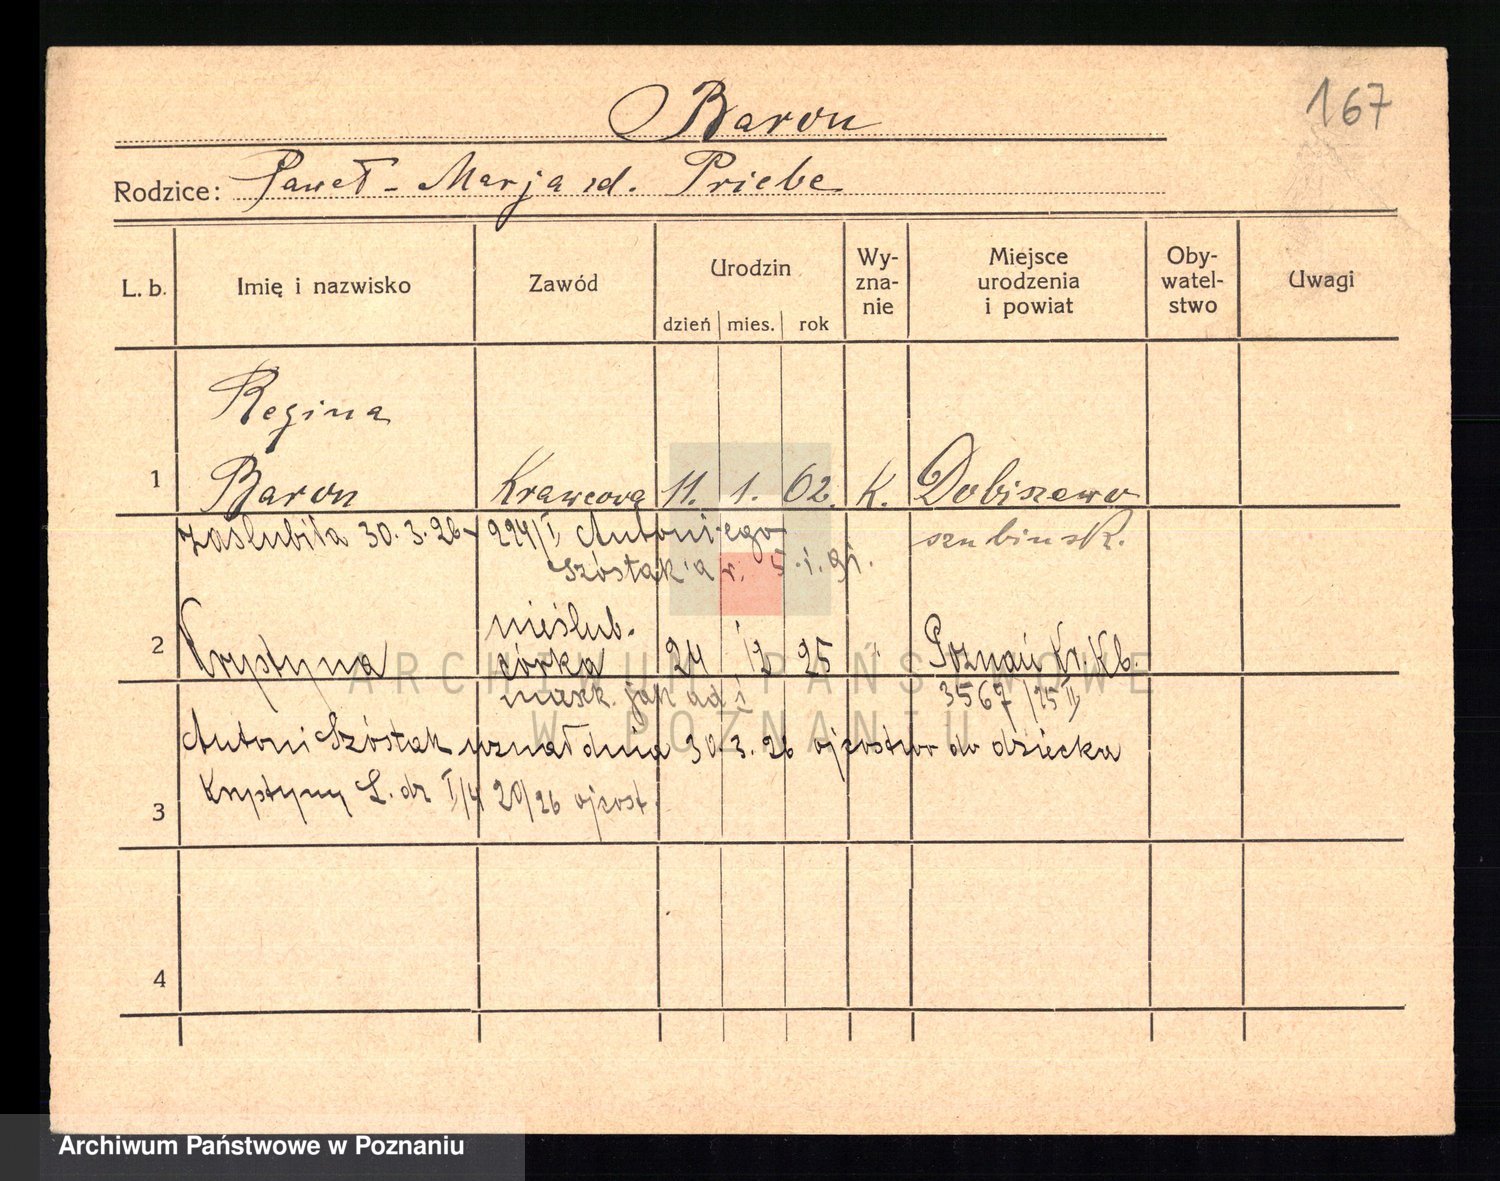 167
Baron
Rodzice: Paweł - Marja zd. Priebe
L. b. Imię i nazwisko Zawód Urodzin dzień mies. rok Wy-zna-nie Miejsce urodzenia i powiat Oby-watel-stwo Uwagi
Regina
1 Baron Krawcowa 11. 1. 02. K. Dobiszewo
zaślubiła 30.3.26 - 224/I Antoni-ego szubinsk.
Szóstak'a r. 5.1.91.
nieślub.
2 Krystyna córka 24 12 25 " Poznań Kr. Kb.
nazk. jak ad 1 3567/25 II
Antoni Szóstak uznał dnia 30.3.26 ojcostwo do dziecka
Krystyny L. dz I/4 20/26 ojcost.
3
4
ARCHIWUM PAŃSTWOWE
W POZNANIU
Archiwum Państwowe w Poznaniu